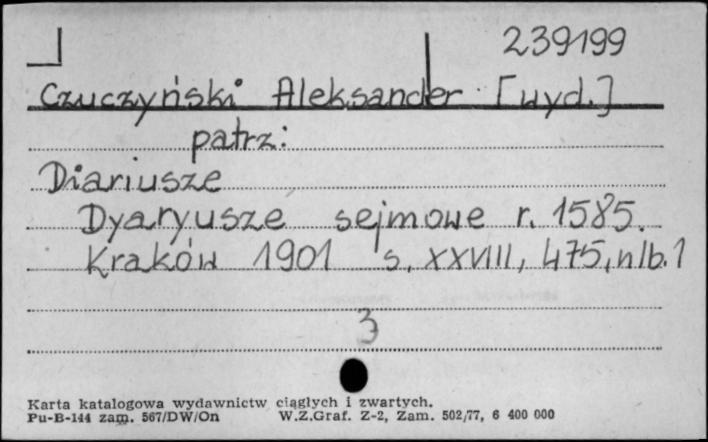 239199
Czuczyński Aleksander [wyd.]
patrz:
Diariusze
Dyaryusze sejmowe r. 1585.
Kraków 1901 s. XXVIII, 475, nlb. 1
3
Karta katalogowa wydawnictw ciągłych i zwartych.
Pu-B-144 zam. 567/DW/On W.Z.Graf. Z-2, Zam. 502/77, 6 400 000